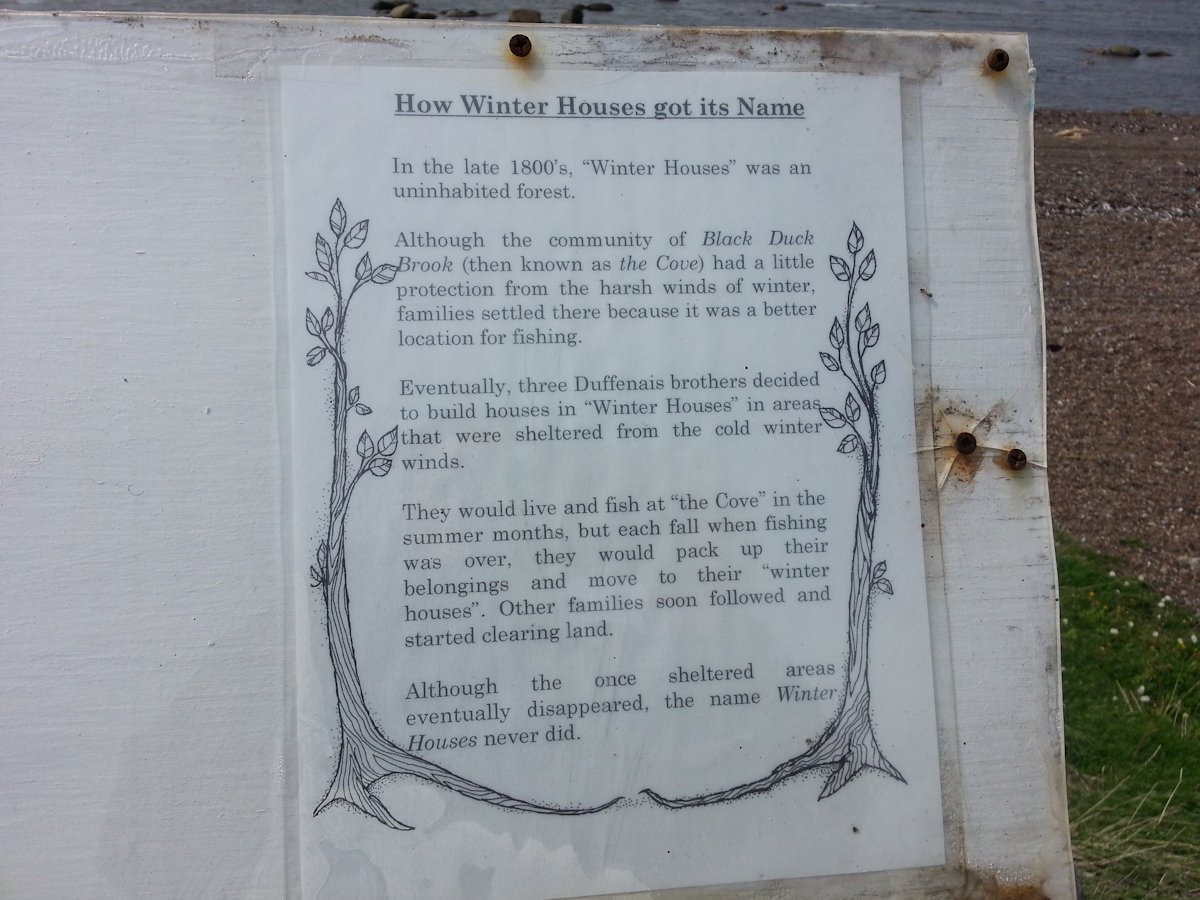 How Winter Houses got its Name
In the late 1800's, “Winter Houses” was an
uninhabited forest.
Although the community of Black Duck
Brook (then known as the Cove) had a little
protection from the harsh winds of winter,
families settled there because it was a better
location for fishing.
Eventually, three Duffenais brothers decided
to build houses in “Winter Houses” in areas
that were sheltered from the cold winter
winds.
They would live and fish at “the Cove” in the
summer months, but each fall when fishing
was over, they would pack up their
belongings and move to their “winter
houses”. Other families soon followed and
started clearing land.
Although the once sheltered areas
eventually disappeared, the name Winter
Houses never did.